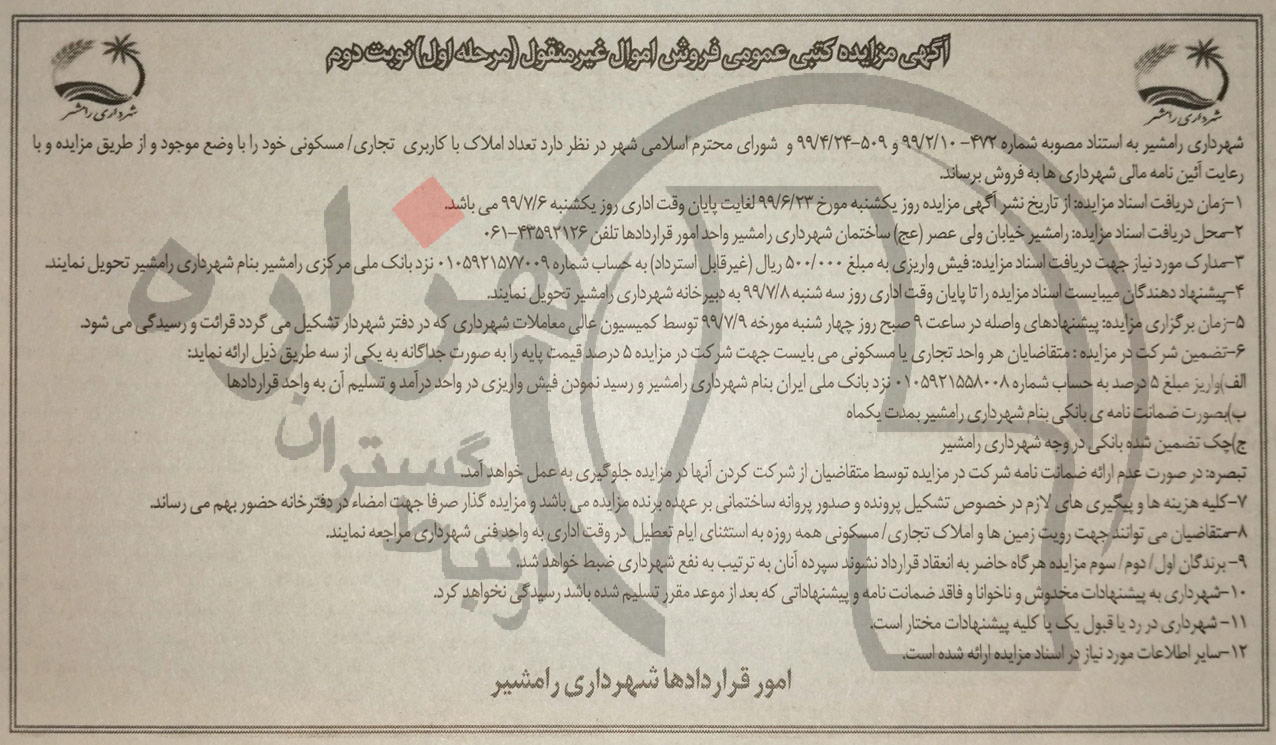 آگهی مزایده کتبی عمومی فروش اموال غیرمنقول (مرحله اول) نوبت دوم
شهرداری رامشیر
شهرداری رامشیر
شهرداری رامشیر به استناد مصوبه شماره ۴۷۲- ۹۹/۲/۱۰ و ۵۰۹-۹۹/۴/۲۴ و شورای محترم اسلامی شهر در نظر دارد تعداد املاک با کاربری تجاری/ مسکونی خود را با وضع موجود و از طریق مزایده و با
رعایت آئین نامه مالی شهرداری ها به فروش برساند.
۱-زمان دریافت اسناد مزایده: از تاریخ نشر آگهی مزایده روز یکشنبه مورخ ۹۹/۶/۲۳ لغایت پایان وقت اداری روز یکشنبه ۹۹/۷/۶ می باشد.
۲-محل دریافت اسناد مزایده: رامشیر خیابان ولی عصر (عج) ساختمان شهرداری رامشیر واحد امور قراردادها تلفن ۴۳۵۹۲۱۲۶-۰۶۱
۳-مدارک مورد نیاز جهت دریافت اسناد مزایده: فیش واریزی به مبلغ ۵۰۰/۰۰۰ ریال (غیرقابل استرداد) به حساب شماره ۰۱۰۵۹۲۱۵۷۷۰۰۹ نزد بانک ملی مرکزی رامشیر بنام شهرداری رامشیر تحویل نمایند.
۴-پیشنهاد دهندگان میبایست اسناد مزایده را تا پایان وقت اداری روز سه شنبه ۹۹/۷/۸ به دبیرخانه شهرداری رامشیر تحویل نمایند.
۵-زمان برگزاری مزایده: پیشنهادهای واصله در ساعت ۹ صبح روز چهار شنبه مورخه ۹۹/۷/۹ توسط کمیسیون عالی معاملات شهرداری که در دفتر شهردار تشکیل می گردد قرائت و رسیدگی می شود.
۶-تضمین شرکت در مزایده : متقاضایان هر واحد تجاری یا مسکونی می بایست جهت شرکت در مزایده ۵ درصد قیمت پایه را به صورت جداگانه به یکی از سه طریق ذیل ارائه نماید:
الف)واریز مبلغ ۵ درصد به حساب شماره ۰۱۰۵۹۲۱۵۵۸۰۰۸ نزد بانک ملی ایران بنام شهرداری رامشیر و رسید نمودن فیش واریزی در واحد درآمد و تسلیم آن به واحد قراردادها
ب)بصورت ضمانت نامه ی بانکی بنام شهرداری رامشیر بمدت یکماه
ج)چک تضمین شده بانکی در وجه شهرداری رامشیر
تبصره: در صورت عدم ارائه ضمانت نامه شرکت در مزایده توسط متقاضیان از شرکت کردن آنها در مزایده جلوگیری به عمل خواهد آمد.
۷-کلیه هزینه ها و پیگیری های لازم در خصوص تشکیل پرونده و صدور پروانه ساختمانی بر عهده برنده مزایده می باشد و مزایده گذار صرفا جهت امضاء در دفترخانه حضور بهم می رساند.
۸-متقاضیان می توانند جهت رویت زمین ها و املاک تجاری/ مسکونی همه روزه به استثنای ایام تعطیل در وقت اداری به واحد فنی شهرداری مراجعه نمایند.
۹- برندگان اول/ دوم/ سوم مزایده هرگاه حاضر به انعقاد قرارداد نشوند سپرده آنان به ترتیب به نفع شهرداری ضبط خواهد شد.
۱۰-شهرداری به پیشنهادات مخدوش و ناخوانا و فاقد ضمانت نامه و پیشنهاداتی که بعد از موعد مقرر تسلیم شده باشد رسیدگی نخواهد کرد.
۱۱- شهرداری در رد یا قبول یک یا کلیه پیشنهادات مختار است.
۱۲-سایر اطلاعات مورد نیاز در اسناد مزایده ارائه شده است.
امور قراردادها شهرداری رامشیر
هزاره
گستران
ارتباط